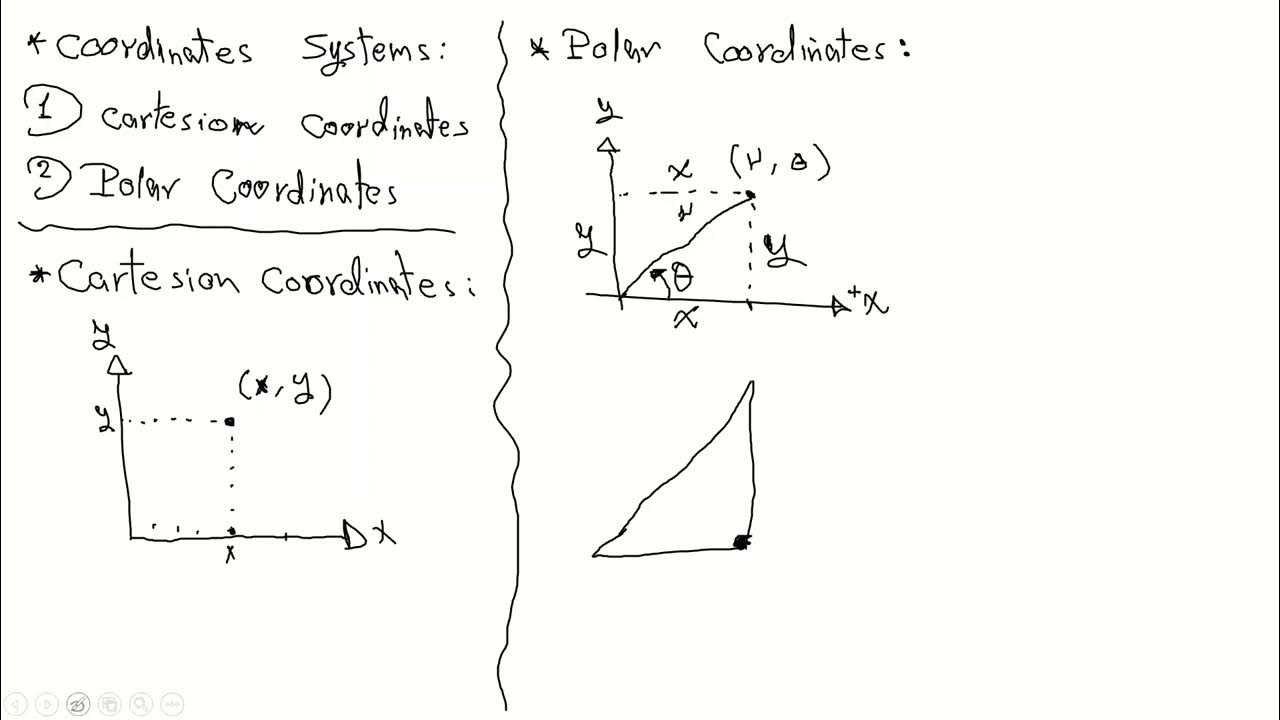 * Coordinates Systems:
① Cartesion coordinates
② Polar Coordinates
* Cartesion Coordinates:
y
(x, y)
y
x
x
* Polar Coordinates:
y
x (r, θ)
r
y y
θ
x +x